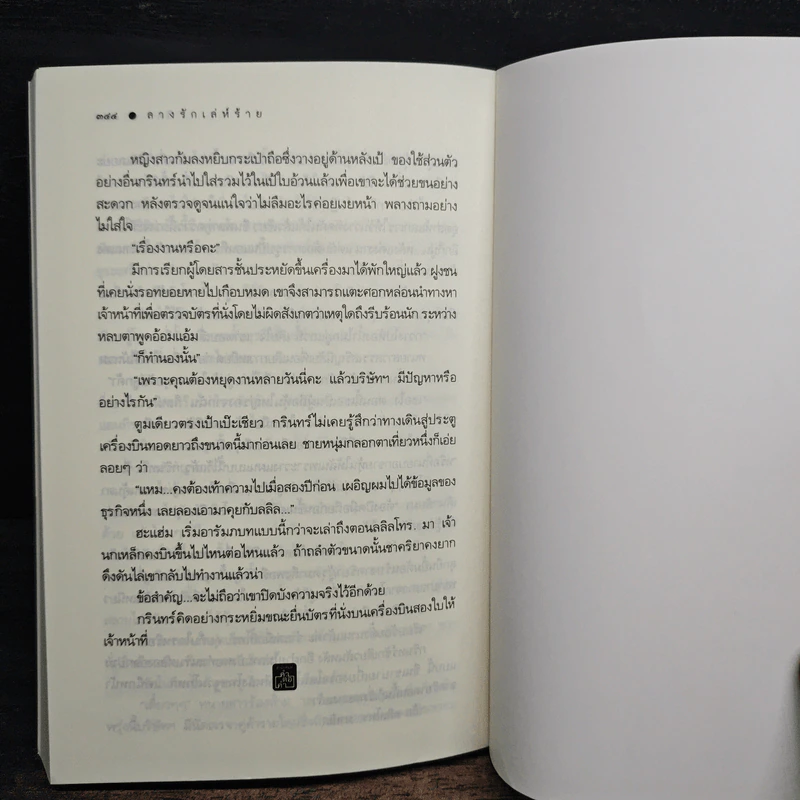 ๓๔๔ ● ลางรักเล่ห์ร้าย
หญิงสาวก้มลงหยิบกระเป๋าถือซึ่งวางอยู่ด้านหลังเป้ ของใช้ส่วนตัว
อย่างอื่นกรินทร์นำไปใส่รวมไว้ในเป้ใบอ้วนแล้วเพื่อเขาจะได้ช่วยขนอย่าง
สะดวก หลังตรวจดูจนแน่ใจว่าไม่ลืมอะไรค่อยเงยหน้า พลางถามอย่าง
ไม่ใส่ใจ
“เรื่องงานหรือคะ”
มีการเรียกผู้โดยสารชั้นประหยัดขึ้นเครื่องมาได้พักใหญ่แล้ว ฝูงชน
ที่เคยนั่งรอทยอยหายไปเกือบหมด เขาจึงสามารถแตะศอกหล่อนนำทางหา
เจ้าหน้าที่เพื่อตรวจบัตรที่นั่งโดยไม่ผิดสังเกตว่าเหตุใดถึงรีบร้อนนัก ระหว่าง
หลบตาพูดอ้อมแอ้ม
“ก็ทำนองนั้น”
“เพราะคุณต้องหยุดงานหลายวันนี่คะ แล้วบริษัทฯ มีปัญหาหรือ
อย่างไรกัน”
ตูมเดียวตรงเป้าเป๊ะเชียว กรินทร์ไม่เคยรู้สึกว่าทางเดินสู่ประตู
เครื่องบินทอดยาวถึงขนาดนี้มาก่อนเลย ชายหนุ่มกลอกตาเที่ยวหนึ่งก็เอ่ย
ลอยๆ ว่า
“แหม...คงต้องเท้าความไปเมื่อสองปีก่อน เผอิญผมไปได้ข้อมูลของ
ธุรกิจหนึ่ง เลยลองเอามาคุยกับลลิล...”
ฮะแฮ่ม เริ่มอารัมภบทแบบนี้กว่าจะเล่าถึงตอนลลิลโทร. มา เจ้า
นกเหล็กคงบินขึ้นไปไหนต่อไหนแล้ว ถ้าถลำตัวขนาดนั้นชาคริยาคงยาก
ดึงดันไล่เขากลับไปทำงานแล้วน่า
ข้อสำคัญ...จะไม่ถือว่าเขาปิดบังความจริงไว้อีกด้วย
กรินทร์คิดอย่างกระหยิ่มขณะยื่นบัตรที่นั่งบนเครื่องบินสองใบให้
เจ้าหน้าที่